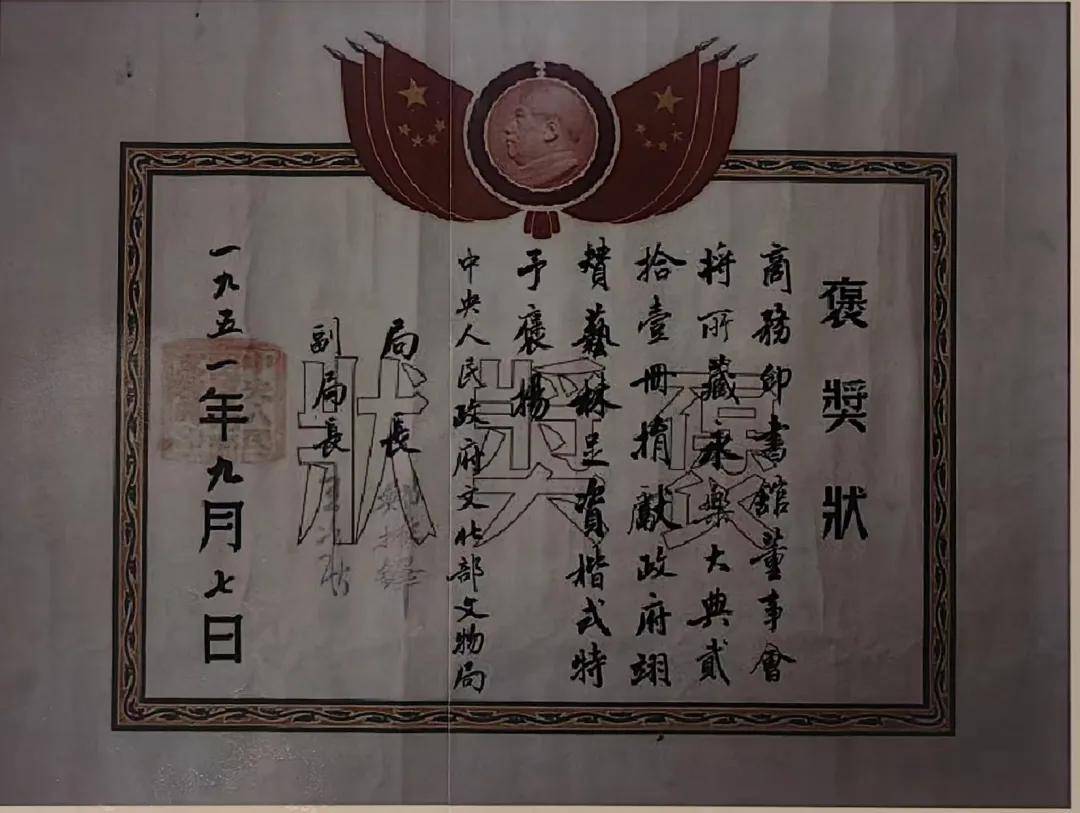 褒獎狀
商務印書館董事會
將所藏永樂大典貳
拾壹冊捐獻政府翊
贊藝林足資楷式特
予褒揚
中央人民政府文化部文物局
局長 鄭振鐸
副局長 王冶秋
一九五一年九月七日
褒獎狀